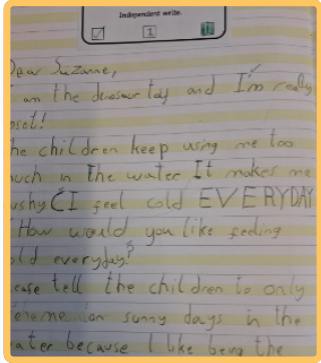 Independent write.
1
Dear Suzanne,
am the dinosaur toy and I'm really
pset!
he children keep using me too
uch in The water It makes me
ushy I feel cold EVERYDAY
How would you like feeling
ld everyday?
ease tell the children to only
me on sunny days in the
ater because I like being the